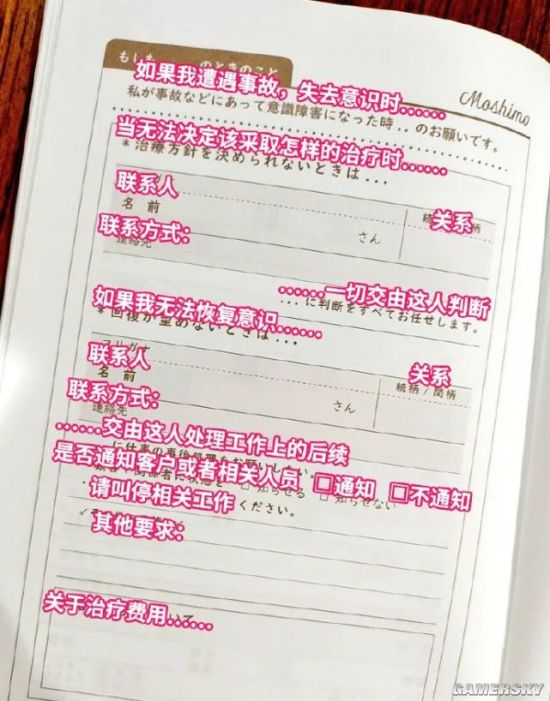 もしも のときのこと
Moshimo
如果我遭遇事故，失去意识时......
私が事故などにあって意識障害になった時..のお願いです。
当无法决定该采取怎样的治疗时......
*治療方針を決められないときは...
联系人
关系
名前
さん
联系方式：
連絡先
......一切交由这人判断
...に判断をすべてお任せします。
如果我无法恢复意识......
*回復が望めないときは...
联系人
关系
フリガナ
名前
さん
続柄/間柄
联系方式：
連絡先
......交由这人处理工作上的后续
是否通知客户或者相关人员 □通知 □不通知
知らせる □知らせない
请叫停相关工作
ください。
其他要求：
关于治疗费用......
GAMERSKY